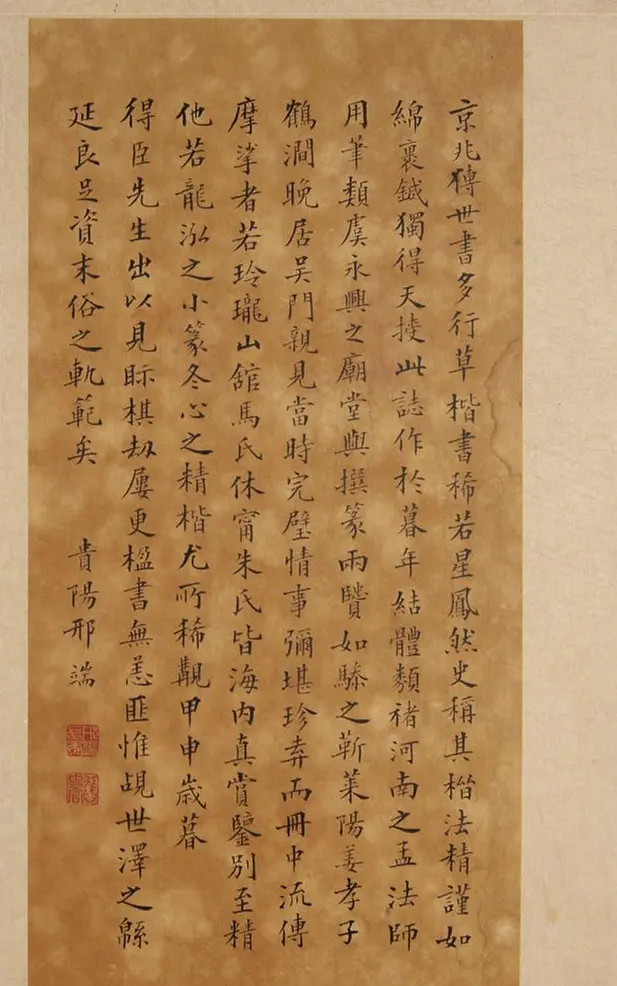 京兆獨世書多行草楷書稀若星鳳然史稱其楷法精謹如
綿裹鍼獨得天授此誌作於暮年結體類褚河南之孟法師
用筆類虞永興之廟堂與撰篆兩賢如驂之靳萊陽姜孝子
鶴澗晚居吳門親見當時完璧情事彌堪珍弆而冊中流傳
摩挲者若玲瓏山館馬氏休甯朱氏皆海內真賞鑒別至精
他若龍泓之小篆冬心之精楷尤所稀覯甲申歲暮
得臣先生出以見眎棋劫屢更楹書無恙匪惟覘世澤之緜
延良足資末俗之軌範矣
貴陽邢端